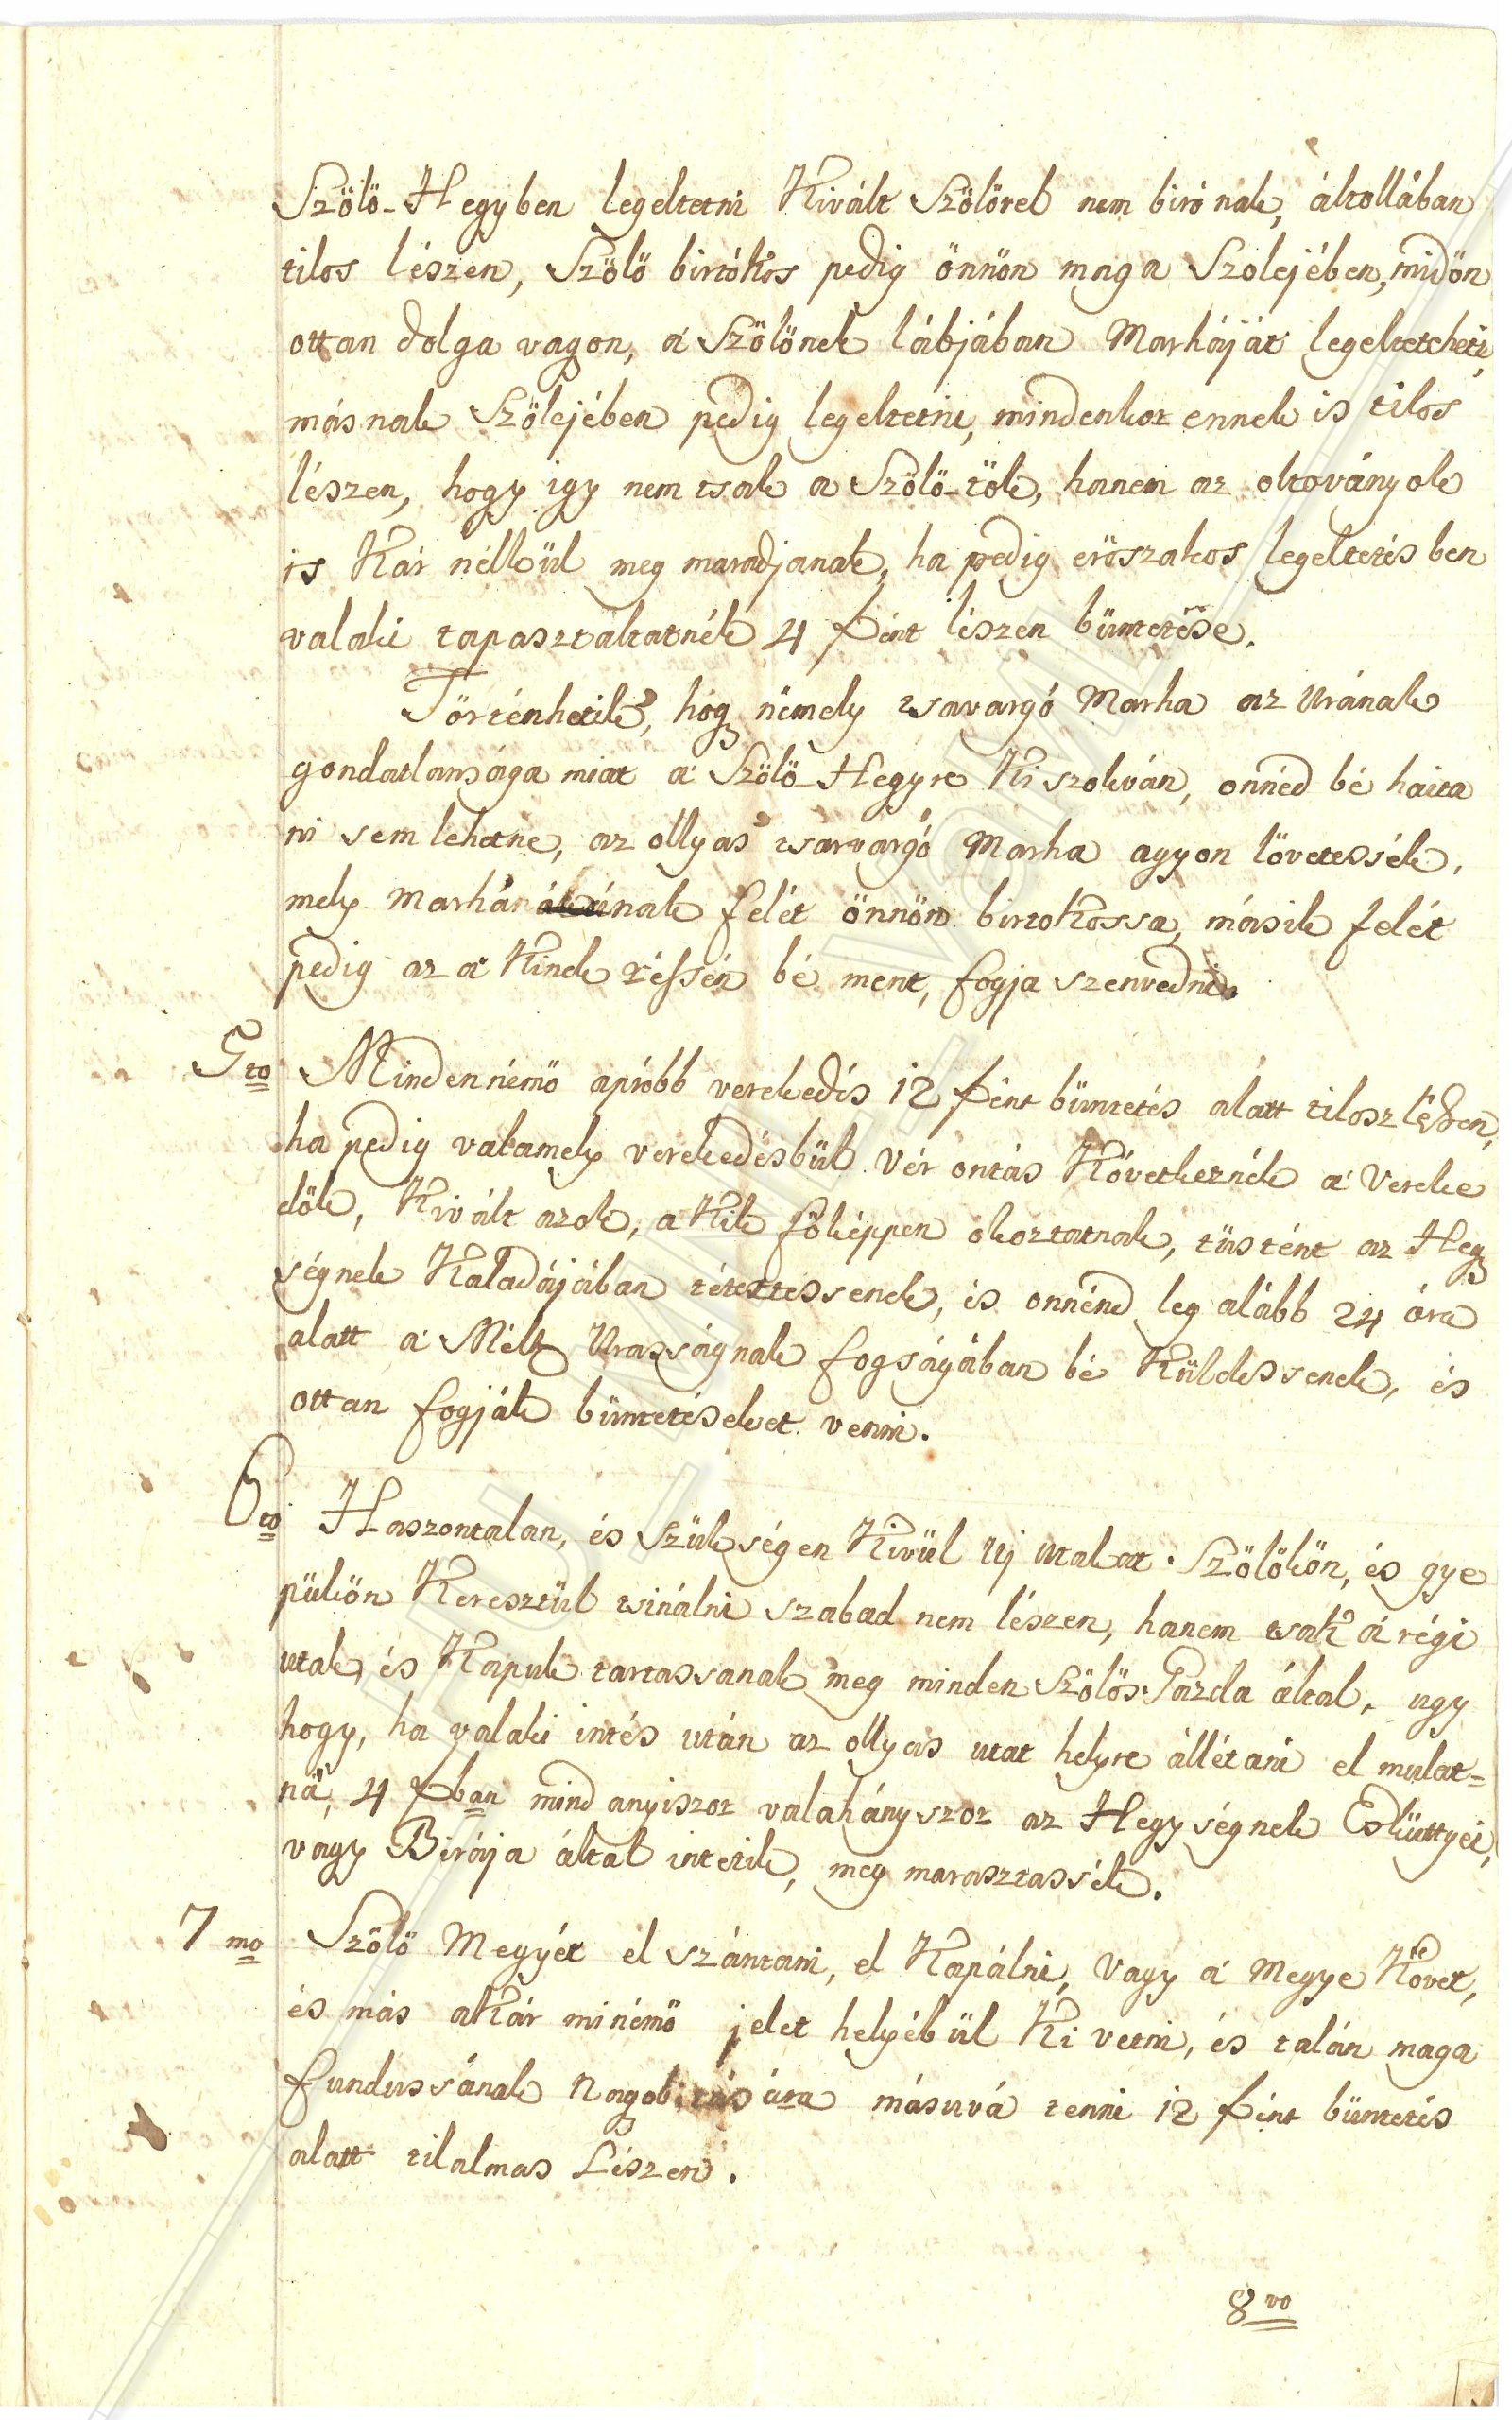 Szőlő-Hegyben legeltetni Kivált Szőlővel nem birónak, általlában
tilos lészen, Szőlő birtókos pedig önnön maga Szőlejében, midőn
ottan dolga vagyon, a' Szőlőnek lábjában Marháját legeltetheti,
másnak Szőlejében pedig legeltetni, mindenkor ennek is tilos
lészen, hogy igy nem tsak a Szőlő-tők, hanem az oltoványok
is Kár nélkül meg maradjanak, ha pedig erőszakos legeltetésben
valaki tapasztaltatnék 4 fként lészen büntetése.
Történhetik, hogy némely tsavargó Marha az Urának
gondatlansága miat a' Szőlő-Hegyre Ki szokván, onnéd bé haita
ni sem lehetne, az ollyas tsarvargó Marha agyon lövetessék,
mely Marhának felét önnön birtokossa, másik felét
pedig az a' Kinek réssén bé ment, fogja szenvedni.
5to Mindennémő apróbb verekedés 12 fként büntetés alatt tilosz lészen,
ha pedig valamely verekedésbül vér ontás Következnék a' Vereke
dők, Kivált azok, a Kik főképpen okoztatnak, tüstént az Hegy
ségnek Kaladájában tétettessenek, és onnénd leg alább 24 óra
alatt a' Mélt Urasságnak fogságában bé Küldessenek, és
ottan fogják büntetéseket venni.
6to Haszontalan, és Szükségen Kivül Uj utakat Szőlőkön, és gye
pükön Keresztül tsinálni szabad nem lészen, hanem tsak a' régi
utak, és Kapuk tartassanak meg minden Szőlős Gazda által, ugy
hogy, ha valaki intés után az ollyas utat helyre állétani el mulat=
ná, 4 fban mind anyiszor valahányszor az Hegységnek Eskűttyei,
vagy Birája által intetik, meg marasztassék.
7mo Szőlő Megyét el szántani, el Kapálni, Vagy a' Megye Követ,
és más aKár minémő jelet helyébül Ki vetni, és talán maga
fundussának Nagobitására másuvá tenni 12 fként büntetés
alatt tilalmas Lészen.
8vo